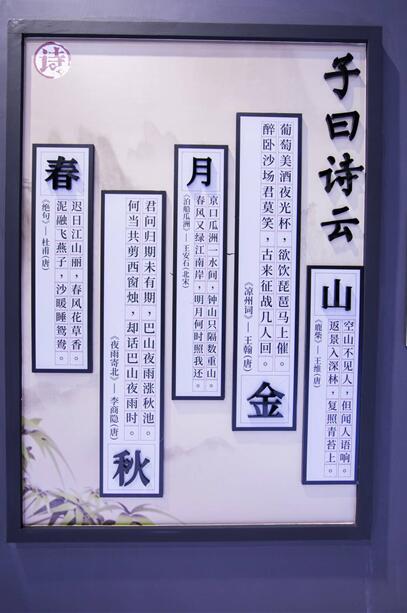 子曰诗云
山
空山不见人，但闻人语响。
返景入深林，复照青苔上。
《鹿柴》——王维(唐)
葡萄美酒夜光杯，欲饮琵琶马上催。
醉卧沙场君莫笑，古来征战几人回。
《凉州词》——王翰(唐)
金
月
京口瓜洲一水间，钟山只隔数重山。
春风又绿江南岸，明月何时照我还。
《泊船瓜洲》——王安石(北宋)
君问归期未有期，巴山夜雨涨秋池。
何当共剪西窗烛，却话巴山夜雨时。
《夜雨寄北》——李商隐(唐)
秋
春
迟日江山丽，春风花草香。
泥融飞燕子，沙暖睡鸳鸯。
《绝句》——杜甫(唐)
诗